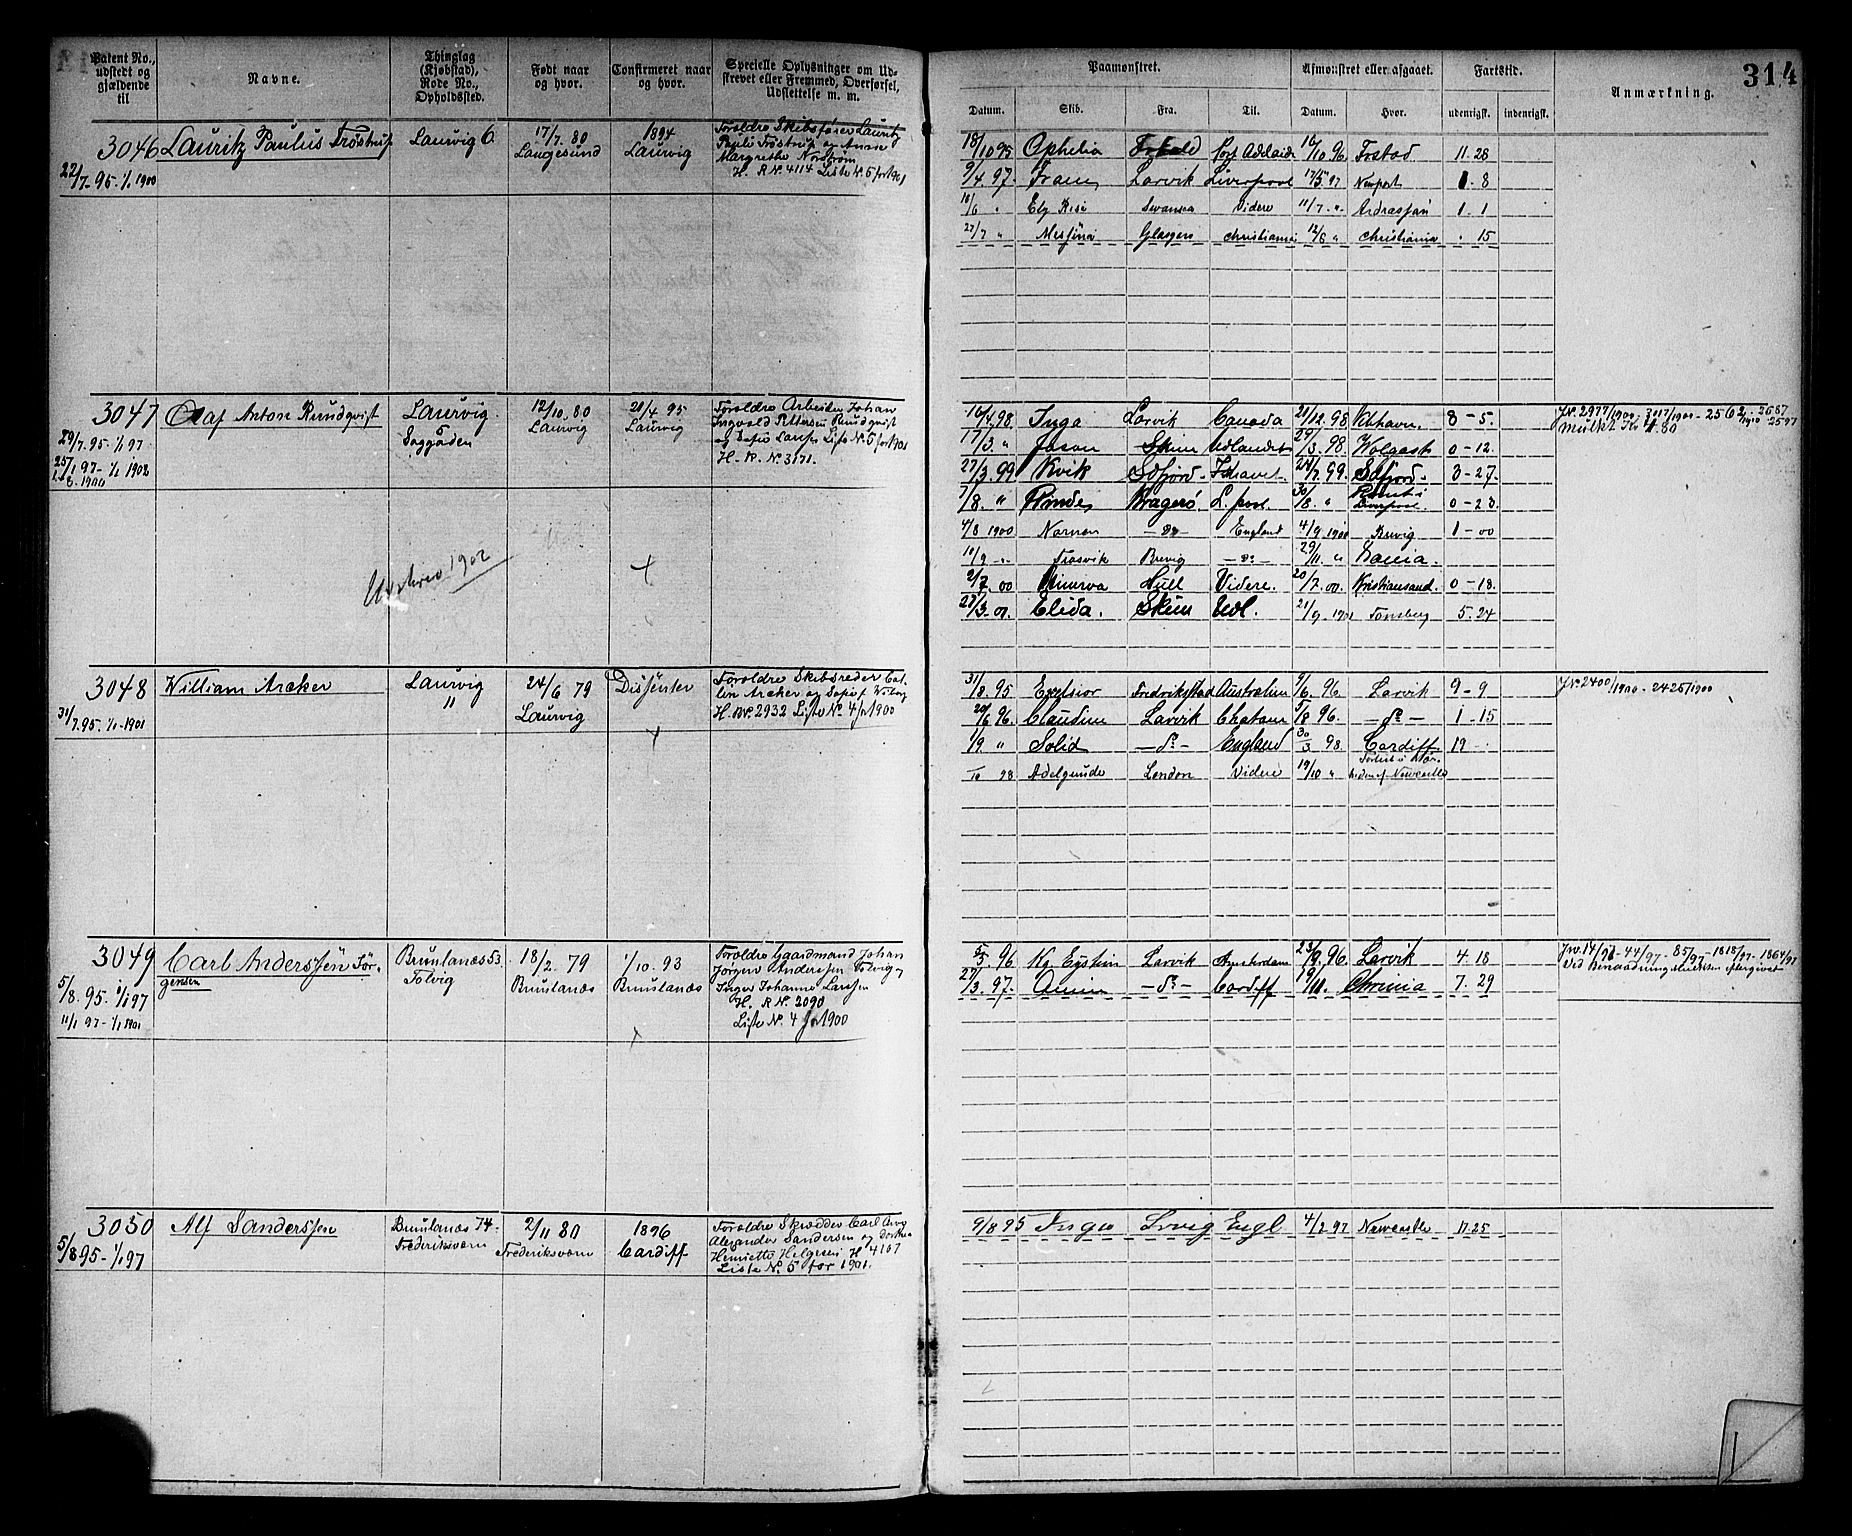 314
Patent No., udstedt og gjældende til
Navne.
Thinglag (Kjøbstad), Rode No., Opholdssted.
Født naar og hvor.
Confirmeret naar og hvor.
Specielle Oplysninger om Udskrevet eller Fremmed, Overførsel, Udslettelse m. m.
Paamønstret.
Afmønstret eller afgaaet.
Fartstid.
Anmærkning.
Datum. Skib. Fra. Til. Datum. Hvor. udenrigsk. indenrigsk.
3046 Lauritz Paulus Trøstrup Laurvig 6. 17/7. 80 1894
22/7. 95. 1/1 1900 Langesund Laurvig
Forældre Skibsfører Lauritz
Pauli Trøstrup og Anna
Margrethe Nordstrøm
H. R No. 4114 Liste No. 5 for 1901
18/10 95 Ophelia Port Adelaide 10/10. 96 Frstad. 11. 28
9/4. 97. Fram Larvik Liverpool 17/5 97 Newport 1. 8
10/6 " Elg Swansea Videre 11/7. " Ardrossan 1. 1
27/7 " Messina Glasgow Christiania 12/8 " Christiania . 15
3047 Olaf Anton Rundqvist Laurvig. 12/10. 80 20/4 95
29/7. 95. 1/1 97. 5 Laurvig Laurvig
25/1 97- 1/1 1902 Saggaden
Forældre Arbeider Johan
Ingvald Pettersen Rundqvist
og Sofie Larsen Liste No. 5 for 1901
H. R. No. 3171.
Udskrev 1902
10/4. 98. Inga Larvik Canada 21/12. 98 Kbhavn. 8 - 5.
17/3 " Jason Skien Udlandet 29/3. 98. Wolgast 0 - 12.
27/3. 99 Kvik Sdfjord. 24/7. 99. Sdfjord. 3 - 27.
7/8. " Rinde Kragerö L.pool. 30/8. " Liverpool 0 - 23.
4/8 1900 Nornen - do - England 4/9 1900 Brevig 1 - 00
10/9 - Frosvik Brevig - do - 29/11. " Dania.
2/7. 00 Minerva Hull Videre. 20/7. 00. Kristiansand. 0 - 18.
Elida. Skien Udl. 21/9. 1901 Tønsberg 5. 24
J.No. 2977/1900 - 3017/1900 - 2562
Mulkt Kr 4.80
3048 William Archer Laurvig 24/6 79 Dissenter
31/7. 95. 1/1. 1901 " Laurvig
Forældre Skibsreder Colin
Archer og Sofie f Wiborg
H. No. 2932 Liste No. 4 for 1900
31/8. 95 Excelsior Fredrikstad Australien 9/6. 96 Larvik 9 - 9
20/6 96. Claudine Larvik Chatam 5/8 96. - do - 1 - 15
1/9 " Solid - do - England 30/3 98. Cardiff 19 -
/10 98 Adelgunde London Videre 19/10 "
J.No. 2400/1900 - 2425/1900
3049 Carl Anderssen Jørgensen Brunlanæs 53. 18/2. 79 1/10. 93
5/8. 95. 1/1 97 Tolvig Brunlanæs Brunlanæs
11/1 97 - 1/1 1901
Forældre Gaardmand Johan
Jørgen Anderssen Tolvig og
Inger Johanne Larssen
H. R No. 2090
Liste No. 4 for 1900
5/5. 96 Kg Eystein Larvik Amsterdam 23/9. 96. Larvik 4. 18
27/3. 97. - do - Cardiff Chrinia 7. 29
Jno. 14/97 - 44/97. - 85/97 - 1818/97. - 1864/97
3050 Alf Sanderssen Brunlanæs 74. 2/11 80 1896
5/8 95 - 1/1 97 Frederiksværn Frederiksværn Cardiff
Forældre Skrædder Carl Aug
Alexander Sandersen og Dorthea
Henriette Helgesen H 4107
Liste No. 5 for 1901.
9/8 95 Inga Lrvig Engl 4/2. 97 Newcastle 17. 25